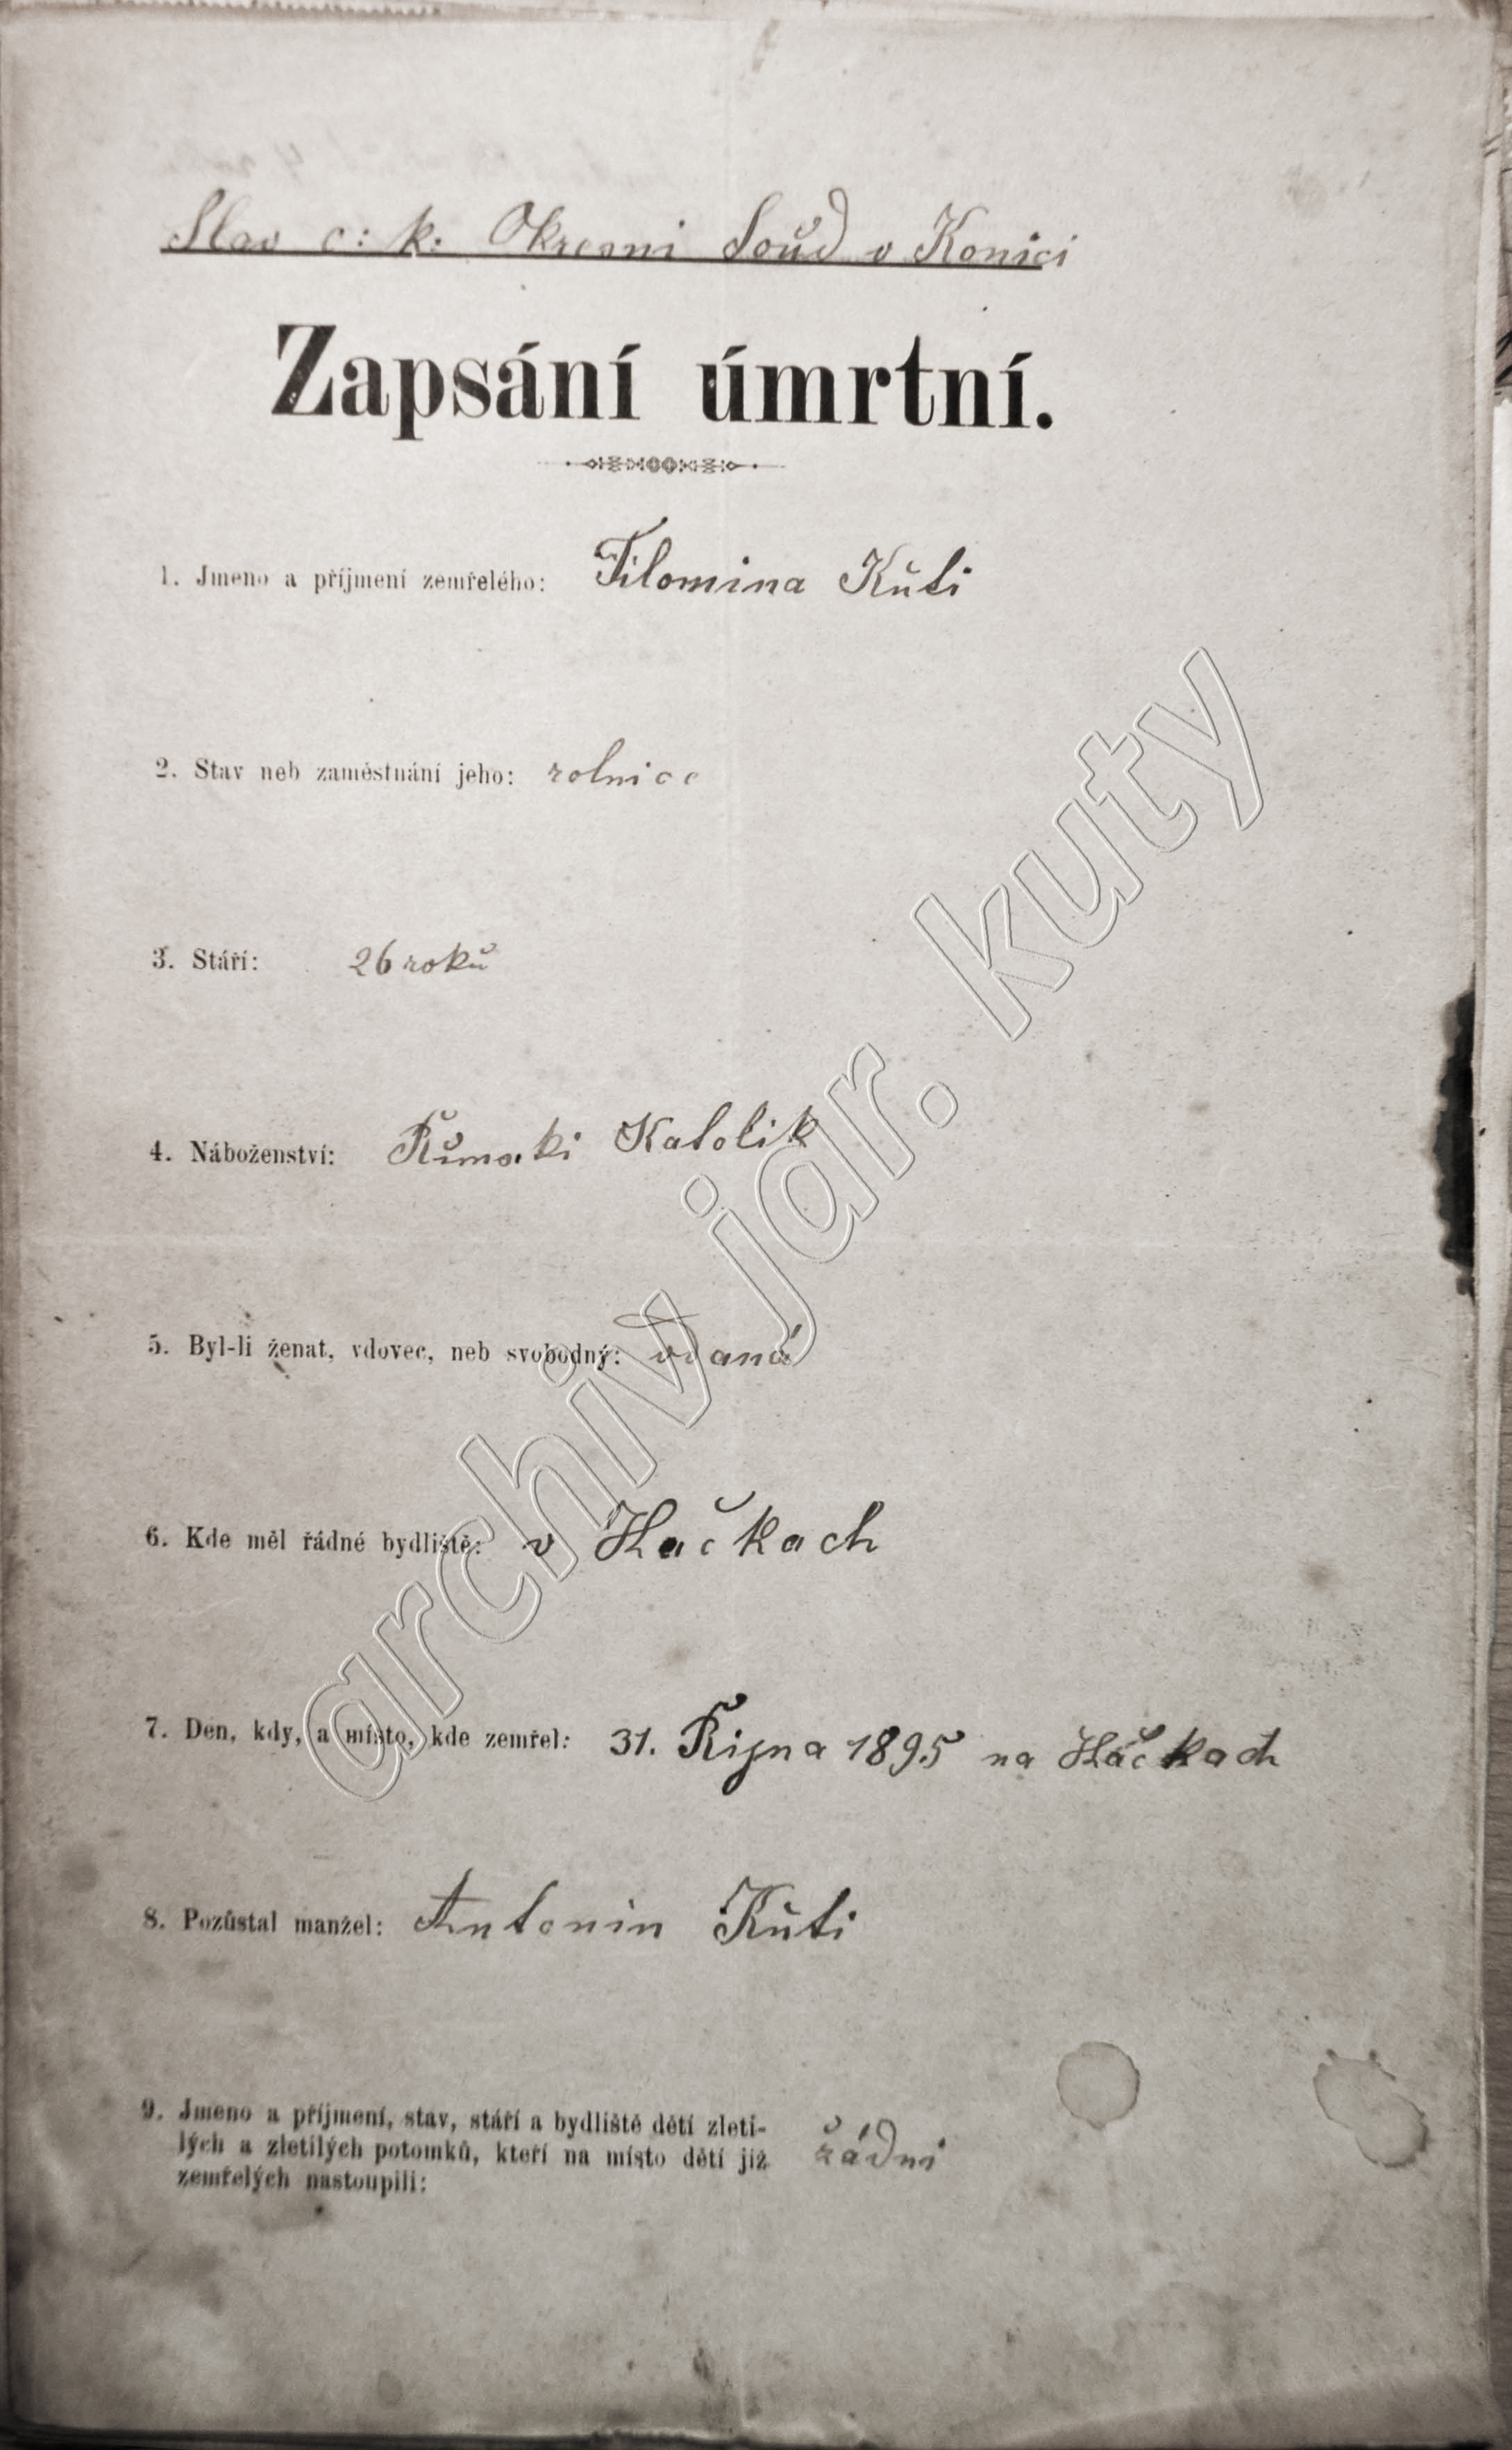 Slav c: k: Okresni Soud v Konici
Zapsání úmrtní.
1. Jmeno a příjmení zemřelého: Filomina Kůti
2. Stav neb zaměstnání jeho: rolnice
3. Stáří: 26 roků
4. Náboženství: Řimski Katolik
5. Byl-li ženat, vdovec, neb svobodný: vdaná
6. Kde měl řádné bydliště: v Hačkach
7. Den, kdy, a místo, kde zemřel: 31. Řijna 1895 na Háčkach
8. Pozůstal manžel: Antonin Kůti
9. Jmeno a příjmení, stav, stáří a bydliště dětí zleti-
lých a zletilých potomků, kteří na místo dětí již žádni
zemřelých nastoupili:
archiv jar. kuty